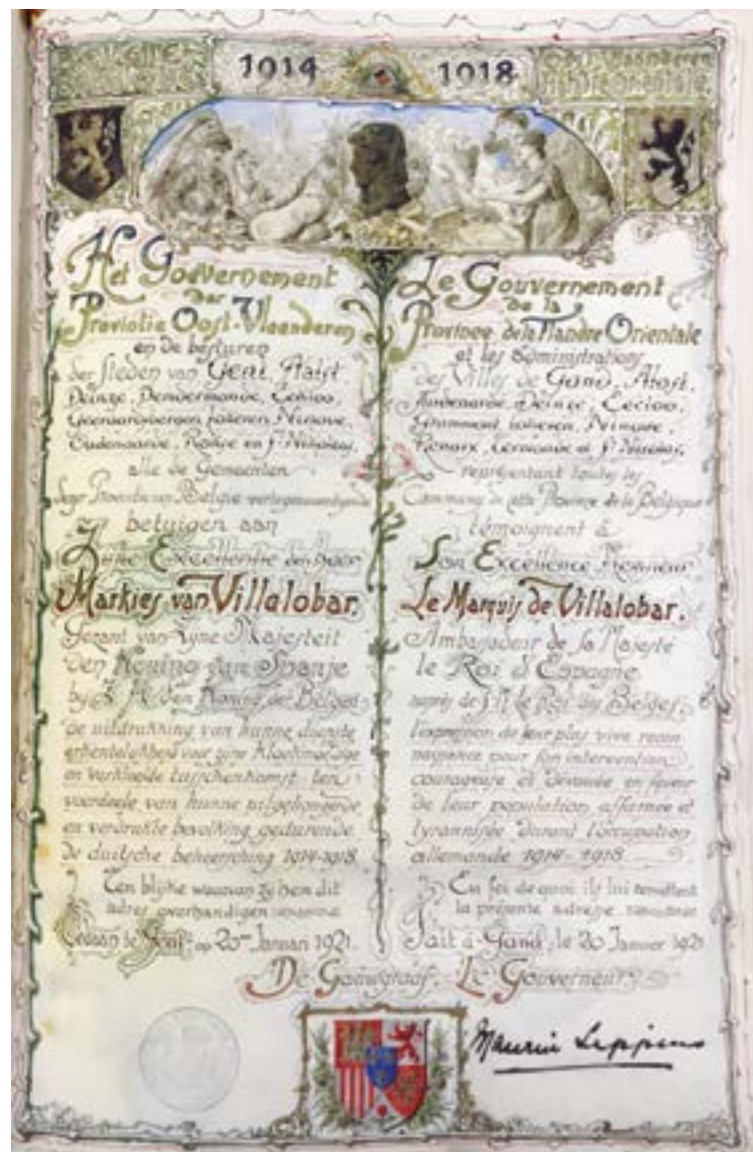 1914 1918
Het Gouvernement
der
Provintie Oost-Vlaanderen
en de besturen
der steden van Gent, Aalst,
Deinze, Dendermonde, Eekloo,
Geeraardsbergen, Lokeren, Ninove,
Oudenaarde, Ronse en St Nikolaas,
alle de Gemeenten
dezer Provintie van Belgie vertegenwoordigende
betuigen aan
Zijne Excellentie den heer
Markies van Villalobar.
Gezant van Zyne Majesteit
den Koning van Spanje
by Z. M. den Koning der Belgen
de uitdrukking van hunne diepste
erkentelykheid voor zyne
en verkleefde tusschenkomst ten
voordeele van hunne uitgehongerde
en verdrukte bevolking gedurende
de duitsche beheersching 1914-1918.
Ten blyke waarvan zy hem dit
adres overhandigen
Gedaan te Gent, op 20en Januari 1921.
Le Gouvernement
de la
Province de la Flandre Orientale
et les administrations
des Villes de Gand, Alost,
Audenaarde, Deinze, Eecloo,
Grammont, Lokeren, Ninove,
Renaix, Termonde et St Nicolas,
représentant toutes les
Communes de cette Province de la Belgique
témoignent à
Son Excellence Monsieur
Le Marquis de Villalobar.
Ambassadeur de Sa Majesté
le Roi d'Espagne
auprès de S. M. le Roi des Belges,
l'expression de leur plus vive recon
naissance pour son intervention
courageuse et dévouée en faveur
de leur population affamée et
tyrannisée durant l'occupation
allemande 1914-1918.
En foi de quoi ils lui remettent
la présente adresse
Fait à Gand, le 20 Janvier 1921
De Gouwgraaf. Le Gouverneur.
Maurice Lippens